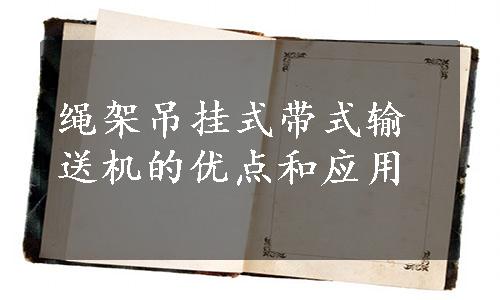 绳架吊挂式带式输
送机的优点和应用